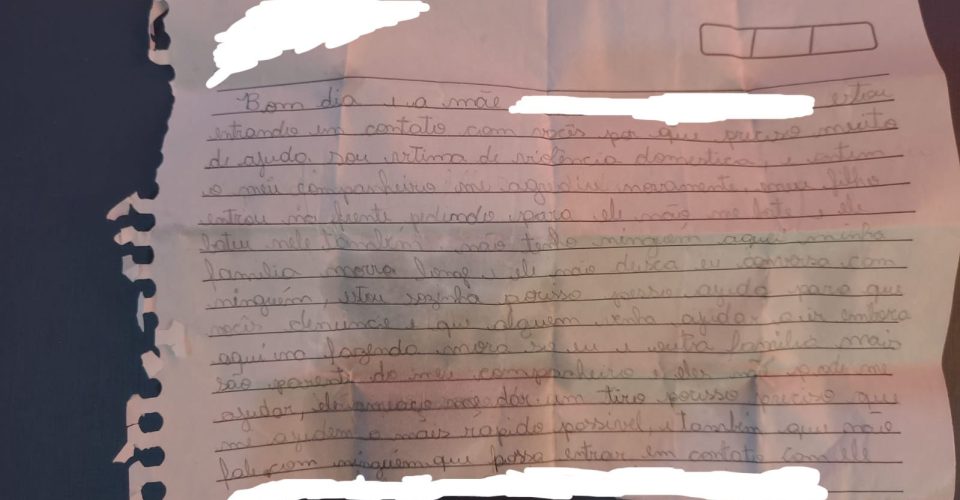 Bom dia e a mãe estou
entrando em contato com vocês por que preciso muito
de ajuda, sou vitima de violência domestica, e ontem
o meu companheiro me agrediu novamente, meu filho
entrou na frente pedindo para ele não me bate e ele
bateu nele também não tenho ninguém aqui minha
familia morra longe e ele não deixa eu conversa com
ninguém, estou sozinha posso ajuda para que
vocês denuncie e que alguem venha ajudar embora
aqui na fazenda mora só eu e outra familia mais
são parente do meu companheiro e eles não pode me
ajudar, dar um tiro preciso que
me ajudem o mais rápido possivel, e também que não
fale com ninguém que possa entrar em contato com ele